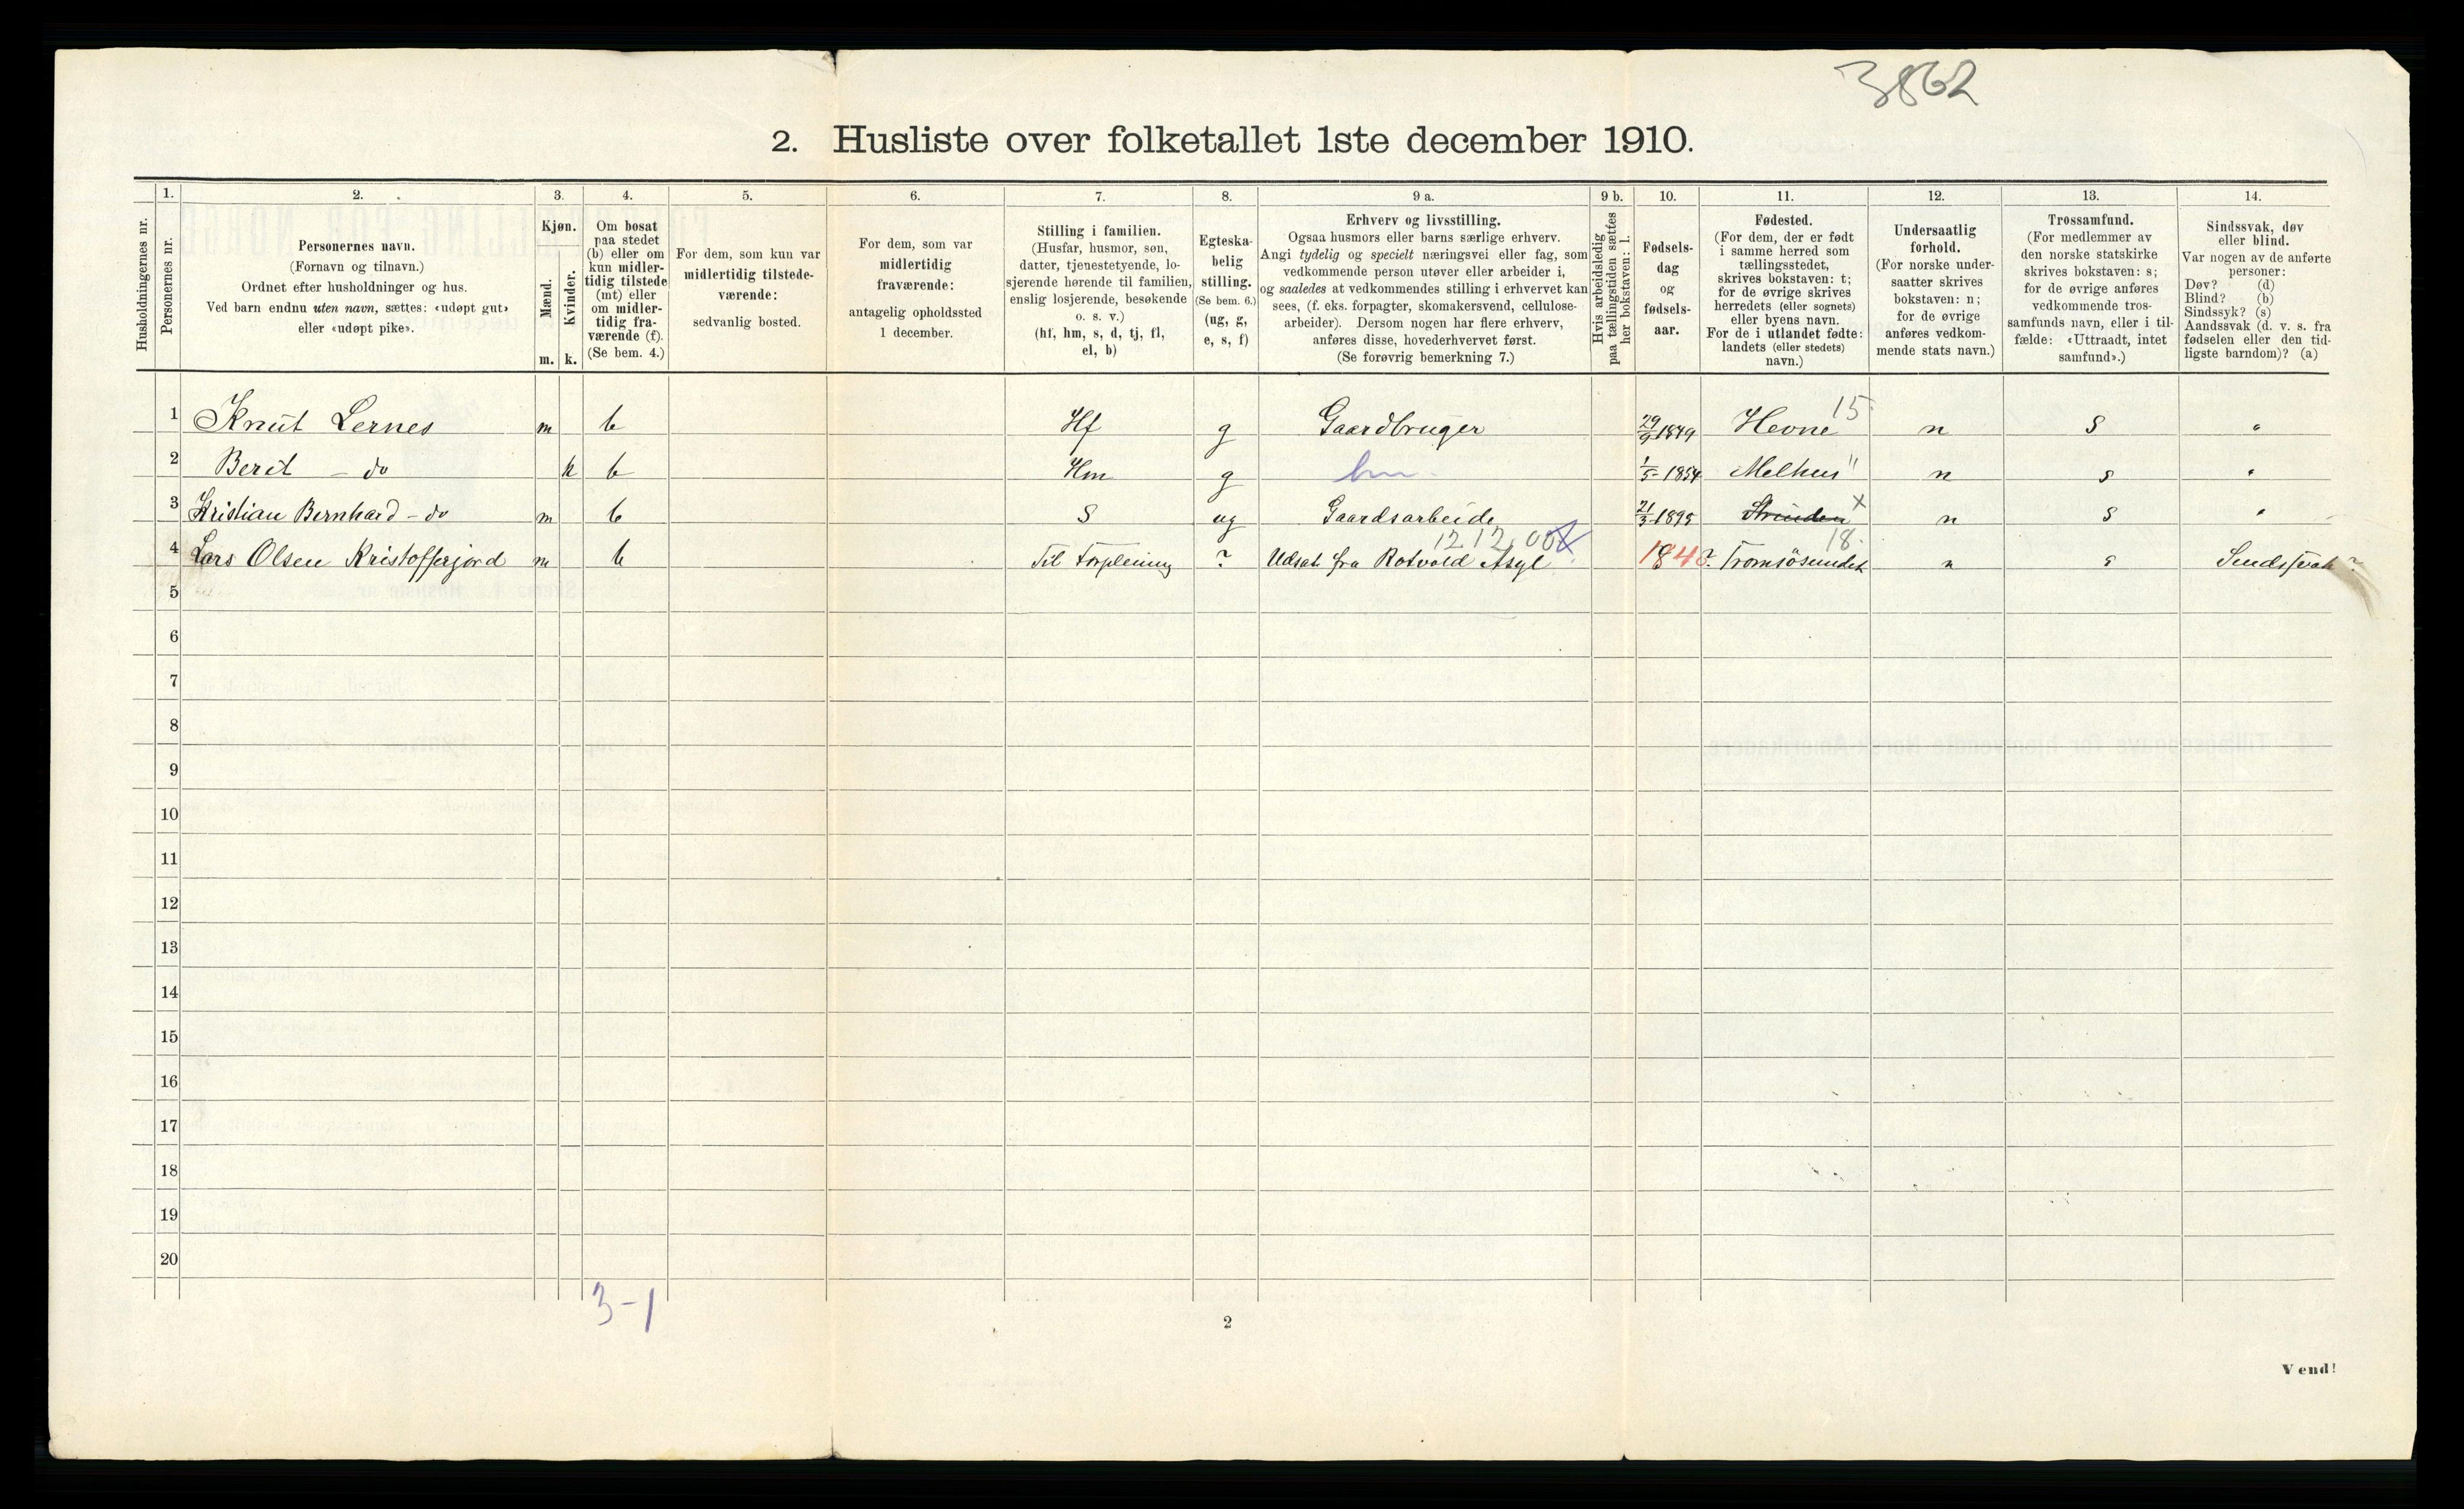 3862
2. Husliste over folketallet 1ste december 1910.
Husholdningernes nr.
1.
Personernes nr.
2.
Personernes navn.
(Fornavn og tilnavn.)
Ordnet efter husholdninger og hus.
Ved barn endnu uten navn, sættes: «udøpt gut»
eller «udøpt pike».
3.
Kjøn.
Mænd.
Kvinder.
m. k.
4.
Om bosat
paa stedet
(b) eller om
kun midler-
tidig tilstede
(mt) eller
om midler-
tidig fra-
værende (f).
(Se bem. 4.)
5.
For dem, som kun var
midlertidig tilstede-
værende:
sedvanlig bosted.
6.
For dem, som var
midlertidig
fraværende:
antagelig opholdssted
1 december.
7.
Stilling i familien.
(Husfar, husmor, søn,
datter, tjenestetyende, lo-
sjerende hørende til familien,
enslig losjerende, besøkende
o. s. v.)
(hf, hm, s, d, tj, fl,
el, b)
8.
Egteska-
belig
stilling.
(Se bem. 6.)
(ug, g,
e, s, f)
9 a.
Erhverv og livsstilling.
Ogsaa husmors eller barns særlige erhverv.
Angi tydelig og specielt næringsvei eller fag, som
vedkommende person utøver eller arbeider i,
og saaledes at vedkommendes stilling i erhvervet kan
sees, (f. eks. forpagter, skomakersvend, cellulose-
arbeider). Dersom nogen har flere erhverv,
anføres disse, hovederhvervet først.
(Se forøvrig bemerkning 7.)
9 b.
Hvis arbeidsledig
paa tællingstiden sættes
her bokstaven: l.
10.
Fødsels-
dag
og
fødsels-
aar.
11.
Fødested.
(For dem, der er født
i samme herred som
tællingsstedet,
skrives bokstaven: t;
for de øvrige skrives
herredets (eller sognets)
eller byens navn.
For de i utlandet fødte:
landets (eller stedets)
navn.)
12.
Undersaatlig
forhold.
(For norske under-
saatter skrives
bokstaven: n;
for de øvrige
anføres vedkom-
mende stats navn.)
13.
Trossamfund.
(For medlemmer av
den norske statskirke
skrives bokstaven: s;
for de øvrige anføres
vedkommende tros-
samfunds navn, eller i til-
fælde: «Uttraadt, intet
samfund».)
14.
Sindssvak, døv
eller blind.
Var nogen av de anførte
personer:
Døv? (d)
Blind? (b)
Sindssyk? (s)
Aandssvak (d. v. s. fra
fødselen eller den tid-
ligste barndom)? (a)
1 Knut Lernes m b Hf g Gaardbruger 29/9 1849 Hevne 15 n S "
2 Berit - do k b Hm g hm 1/5 1854 Melhus " n s "
3 Kristian Bernhard - do m b S ug Gaardsarbeide 21/3 1895 Strinden x n S "
1212,00 18
4 Lars Olsen Kristofferjord m b Til Forpleining ? Udsat fra Rotvold Asyl 184 ? Tromsösundet n s Sindssvak ?
5
6
7
8
9
10
11
12
13
14
15
16
17
18
19
20
3-1
2
Vend!